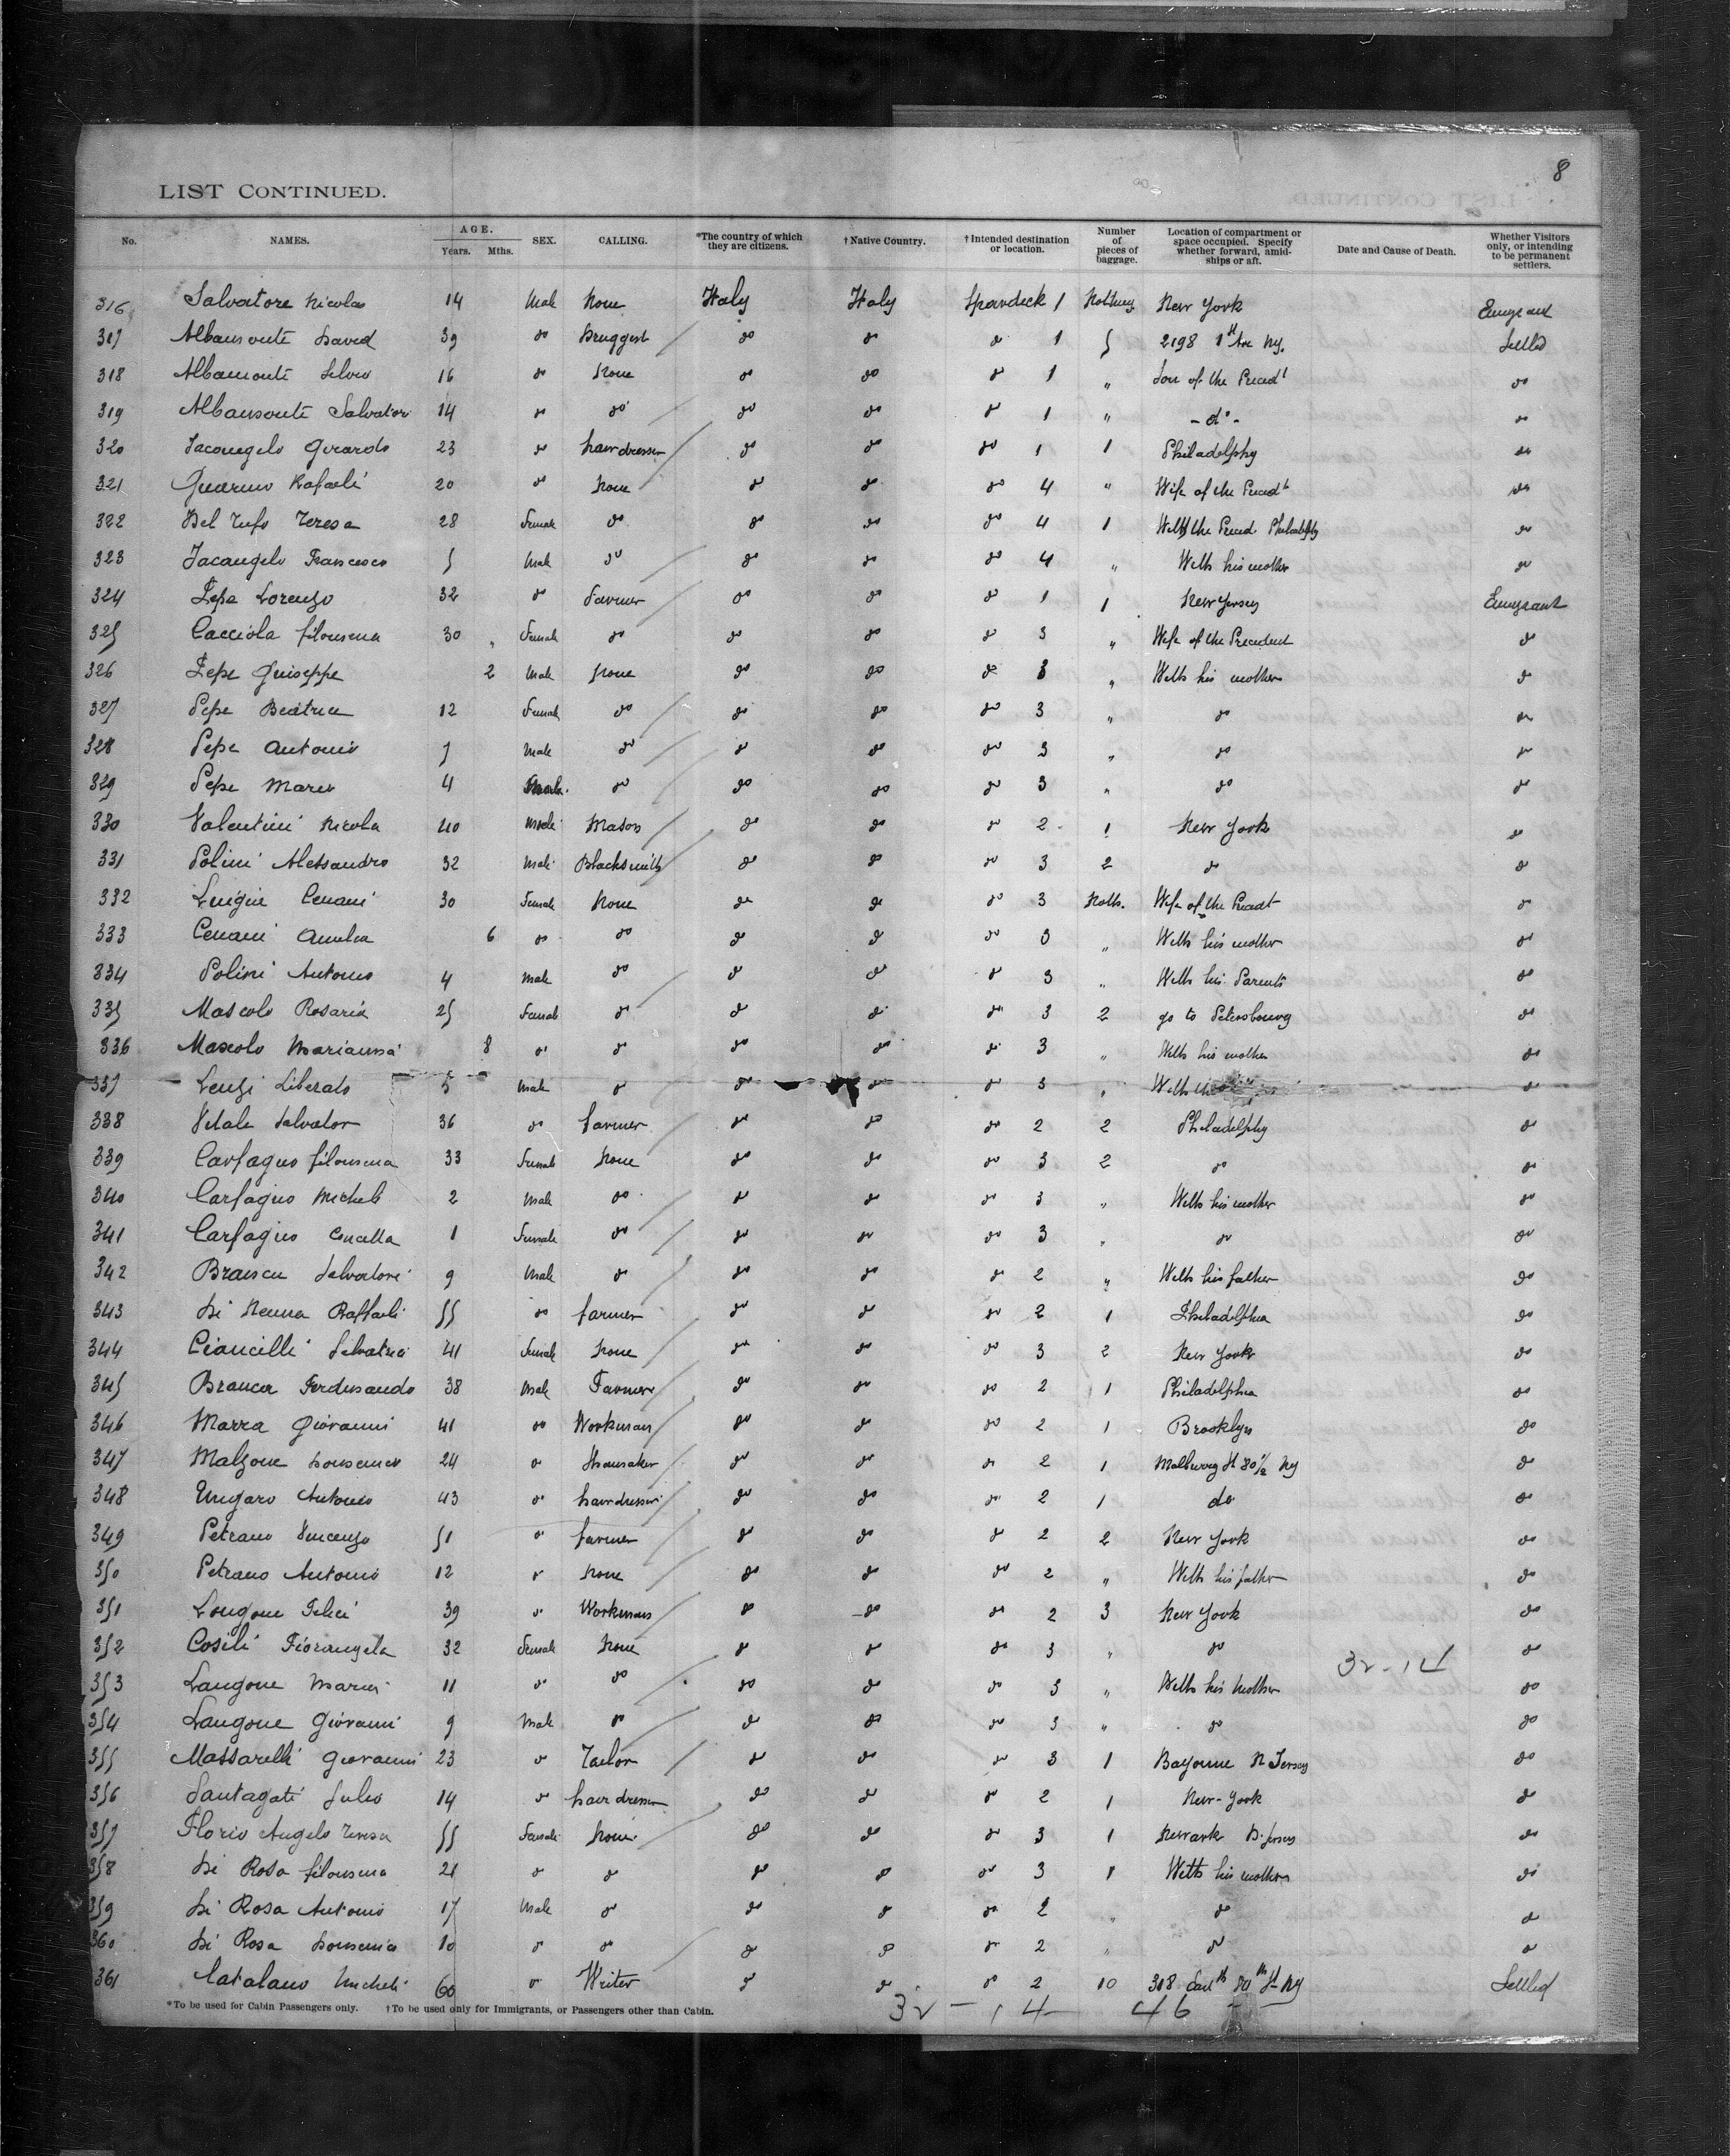 8
LIST CONTINUED.
No. NAMES. AGE. Years. Mths. SEX. CALLING. *The country of which they are citizens. †Native Country. †Intended destination or location. Number of pieces of baggage. Location of compartment or space occupied. Specify whether forward, amidships or aft. Date and Cause of Death. Whether Visitors only, or intending to be permanent settlers.
316 Salvatore Nicolas 14 Male None Italy Italy Spardeck 1 Nothing New York Emigrant
317 39 do Druggist do do do 1 2198 1st Ave Ny. Settled
318 Albamonte Silvio 16 do None do do do 1 " Son of the Preced't do
319 Albamonte Salvatore 14 do do do do do 1 " -do- do
320 Jacongelo Gerardo 23 do hairdresser do do do 1 1 Philadelphy do
321 Rafaele 20 do None do do do 4 " Wife of the Preced't do
322 Del Tufo Teresa 28 Female do do do do 4 1 With the Preced. Philadelphy do
323 Jacangelo Francesco 5 Male do do do do 4 " With his mother do
324 Pepe Lorenzo 32 do Farmer do do do 1 1 New Jersey Emigrant
325 Cacciola filomena 30 " Female do do do do 3 " Wife of the Precedent do
326 Pepe Guiseppe 2 Male None do do do 3 " With his mother do
327 Pepe Beatrice 12 Female do do do do 3 " do do
328 Pepe Antonio 7 Male do do do do 3 " do do
329 Pepe 4 do do do do 3 " do do
330 Valentini Nicola 40 Male Mason do do do 2 1 New York do
331 Polini Alessandro 32 Male Blacksmith do do do 3 2 do do
332 Luigia Cenani 30 Female None do do do 3 Noth. Wife of the Preced't do
333 Cenani Amelia 6 do do do do do 3 " With his mother do
334 Polini Antonio 4 Male do do do do 3 " With his Parents do
335 Mascolo Rosaria 25 Female do do do do 3 2 go to Petersbourg do
336 Mascolo Marianna 8 do do do do do 3 " With his mother do
337 Lenzi Liberato 5 Male do do do do 3 " With do
338 Vitale Salvator 36 do farmer do do do 2 2 Philadelphy do
339 Carfagno filomena 33 Female None do do do 3 2 do do
340 Carfagno Michele 2 Male do do do do 3 " With his mother do
341 Carfagno 1 Female do do do do 3 " do do
342 Salvatore 9 Male do do do do 2 " With his father do
343 Di Raffaele 55 do farmer do do do 2 1 Philadelphia do
344 Ciancilli 41 Female None do do do 3 2 New York do
345 Branca Ferdinando 38 Male Farmer do do do 2 1 Philadelphia do
346 Marra Giovanni 41 do Workman do do do 2 1 Brooklyn do
347 Malzone 24 do Shoemaker do do do 2 1 Malburry St 80 1/2 Ny do
348 Ungaro Antonio 43 do hairdresser do do do 2 1 do do
349 Petrano Vincenzo 51 do farmer do do do 2 2 New York do
350 Petrano Antonio 12 do None do do do 2 " With his father do
351 Langone Felice 39 do Workman do do do 2 3 New York do
352 Cosile Fiorangela 32 Female None do do do 3 " do do
32-14
353 Langone Maria 11 do do do do do 3 " With his Mother do
354 Langone Giovanni 9 Male do do do do 3 " do do
355 Massarelli Giovanni 23 do Tailor do do do 3 1 Bayonne N Jersey do
356 Santagati Julio 14 do hairdresser do do do 2 1 New-York do
357 Florio Angela Teresa 55 Female None do do do 3 1 Newark N. Jersey do
358 Di Rosa filomena 21 do do do do do 3 1 With his mother do
359 Di Rosa Antonio 17 Male do do do do 2 " do do
360 Di Rosa 10 do do do do do 2 " do do
361 Catalano Michele 60 do Writer do do do 2 10 318 East 80th St Ny Settled
*To be used for Cabin Passengers only. †To be used only for Immigrants, or Passengers other than Cabin.
32-14 46